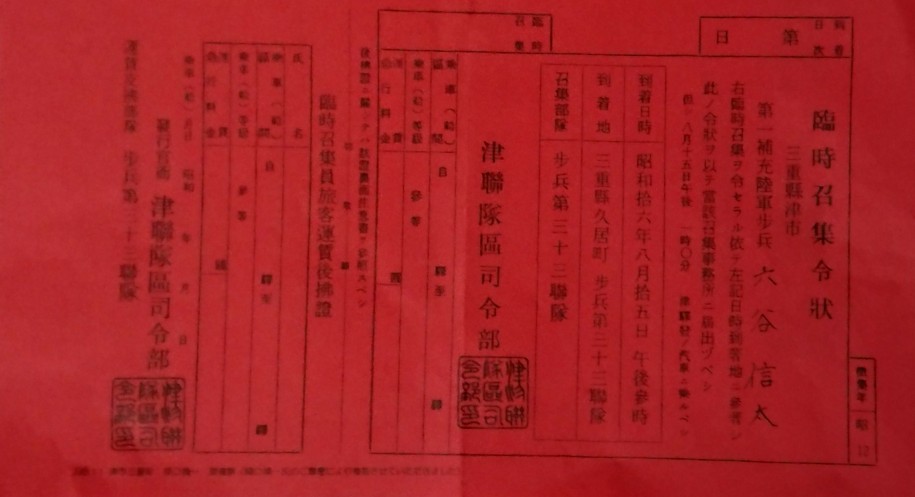 到着
日次
第 日
臨時
召集
臨時召集令狀
三重縣津市
第一補充陸軍步兵 六谷信太
右臨時召集ヲ令セラル依テ左記日時到著地ニ參著シ
此ノ令狀ヲ以テ當該召集事務所ニ屆出ヅベシ
但シ八月十五日午後一時〇分 津驛發ノ汽車ニ乘ルベシ
到着日時 昭和拾六年八月拾五日 午後參時
到着地 三重縣久居町 步兵第三十三聯隊
召集部隊 步兵第三十三聯隊
津聯隊區司令部
徵集年 昭12
乘車(船)區間 自 驛至 驛
乘車(船)等級 參等
運賃 圓
臨時召集員旅客運賃後拂證
氏名
乘車(船)區間 自 驛至 驛
乘車(船)等級 參等
運賃 圓
乘車(船)月日 昭和 年 月 日
發行官廳 津聯隊區司令部
運賃支拂部隊 步兵第三十三聯隊